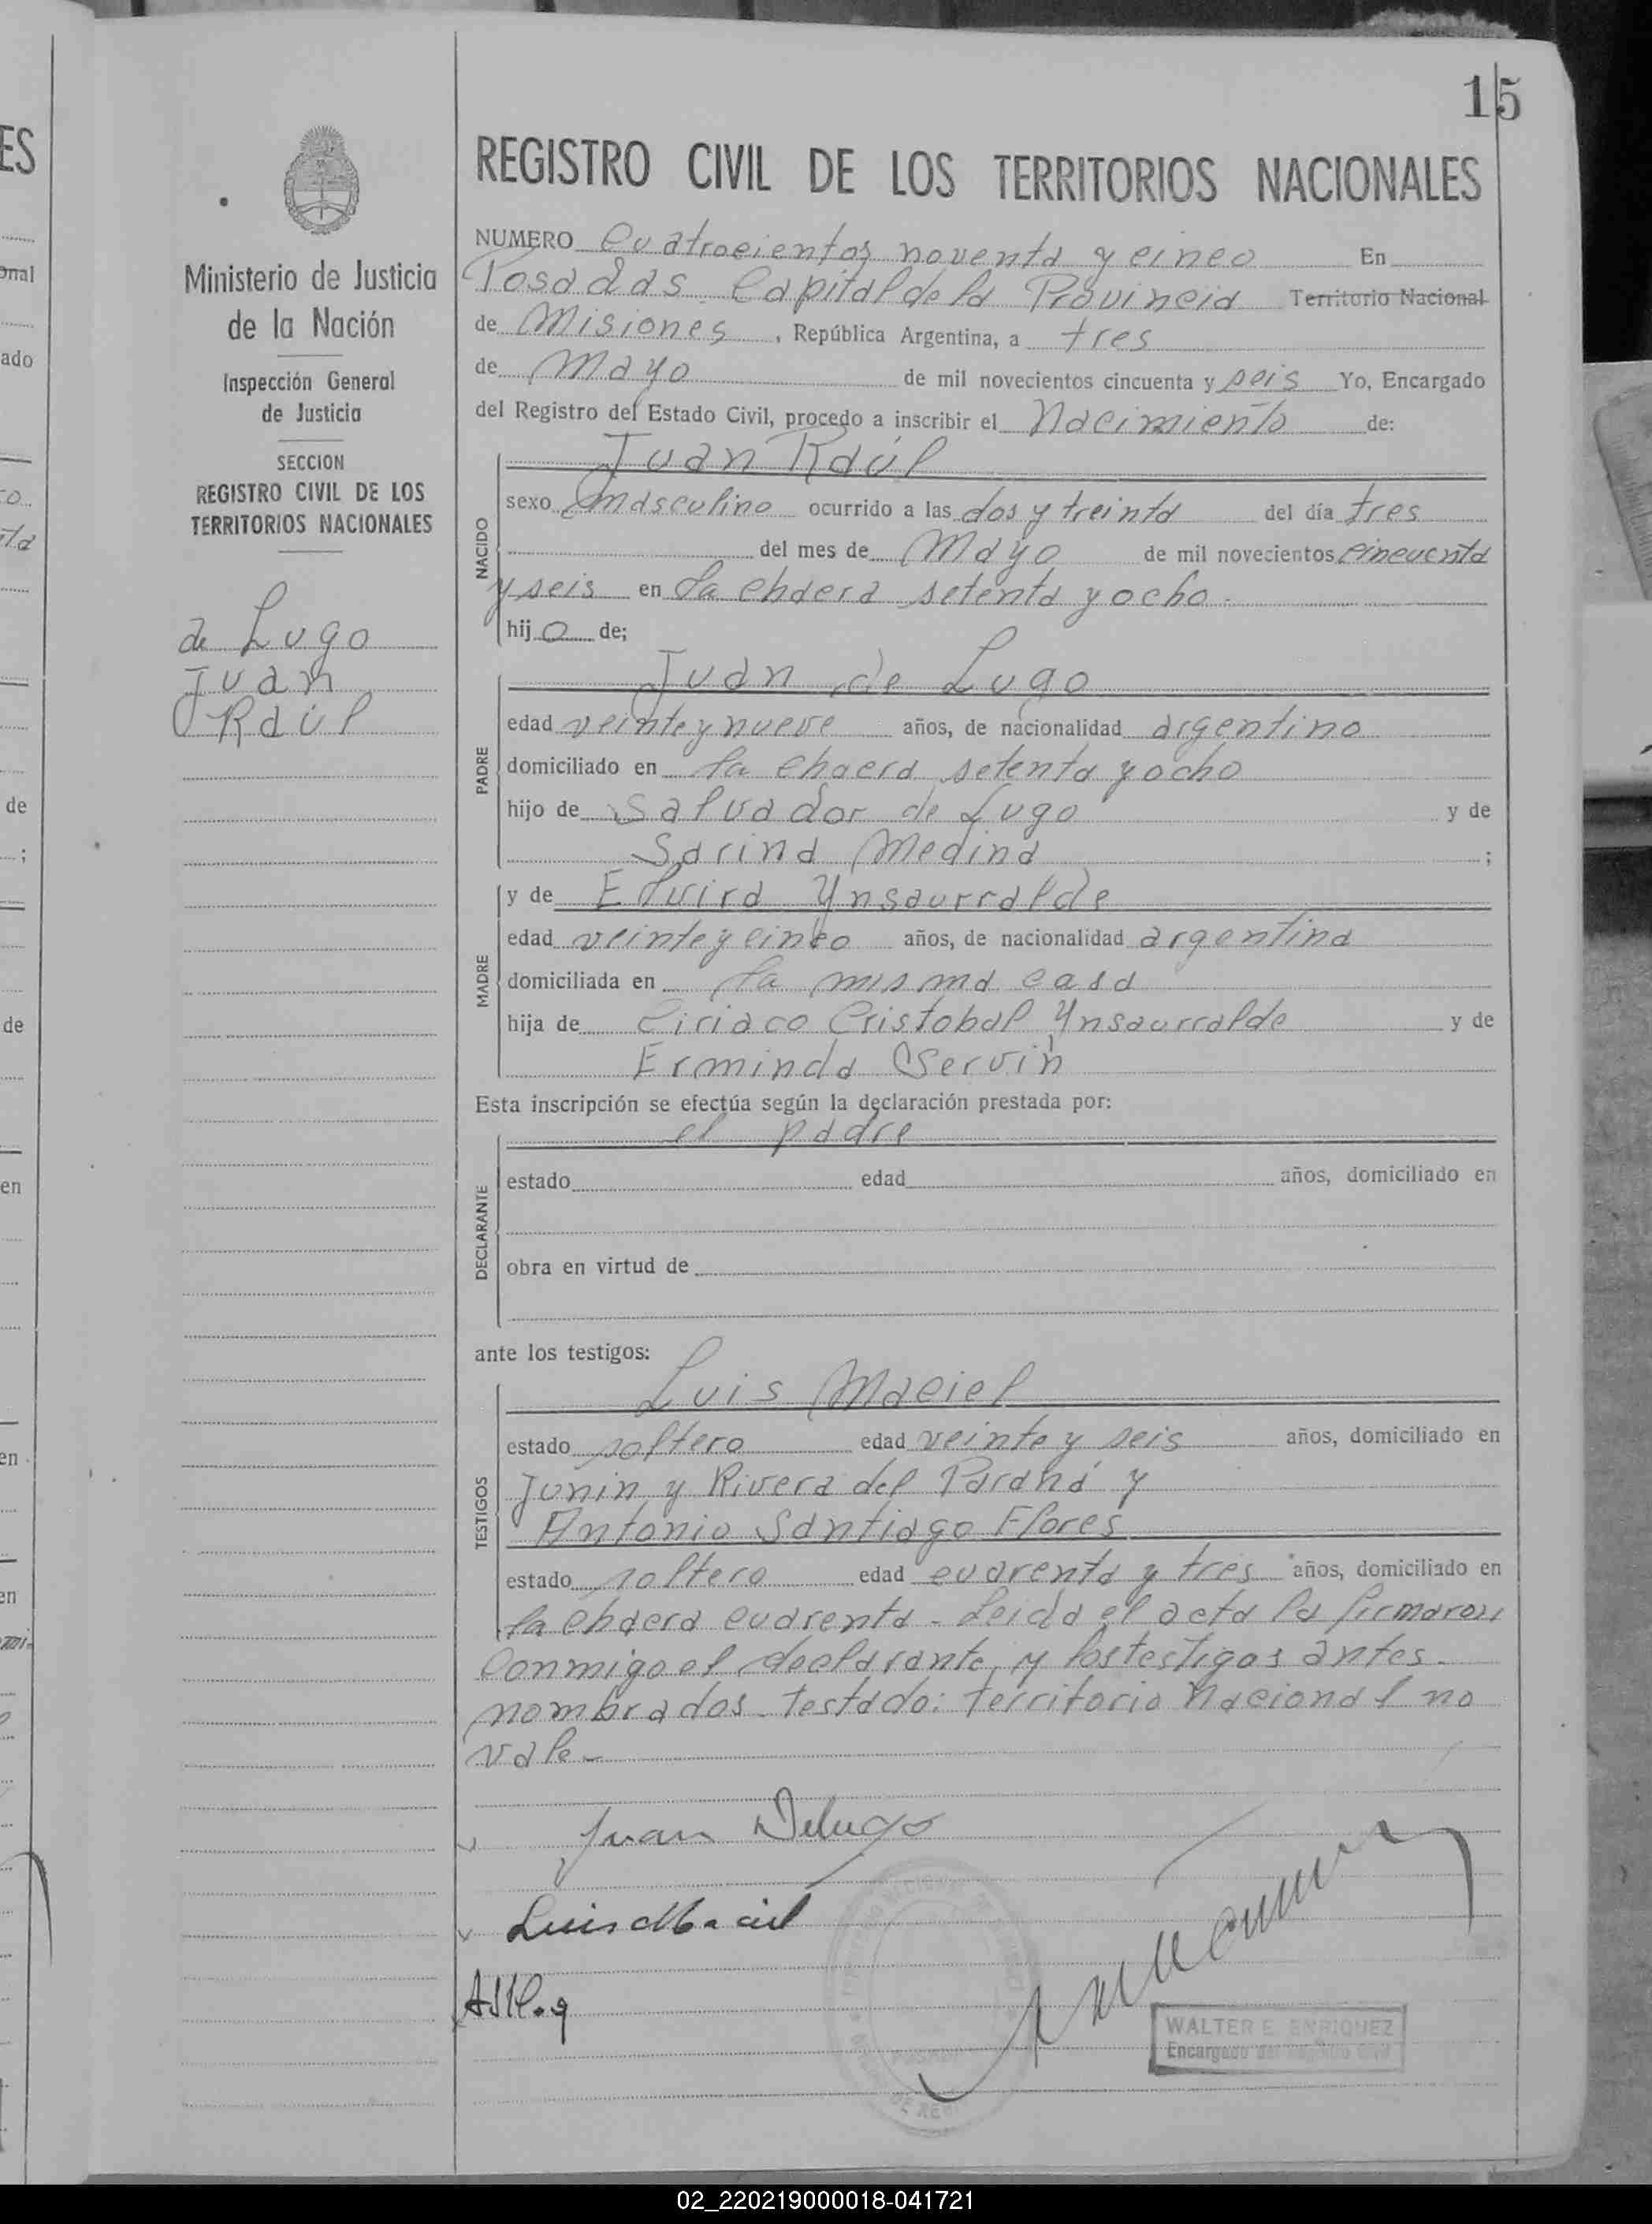 15
REGISTRO CIVIL DE LOS TERRITORIOS NACIONALES
Ministerio de Justicia
de la Nación
Inspección General
de Justicia
SECCION
REGISTRO CIVIL DE LOS
TERRITORIOS NACIONALES
de Lugo
Juan
Raúl
NUMERO Cuatrocientos noventa y cinco En
Posadas Capital de la Provincia Territorio Nacional
de Misiones, República Argentina, a tres
de Mayo de mil novecientos cincuenta y seis Yo, Encargado
del Registro del Estado Civil, procedo a inscribir el Nacimiento de:
NACIDO
Juan Raúl
sexo masculino ocurrido a las dos y treinta del día tres
del mes de Mayo de mil novecientos cincuenta
y seis en la chacra setenta y ocho.
hijo de;
PADRE
Juan de Lugo
edad veinte y nueve años, de nacionalidad argentino
domiciliado en la chacra setenta y ocho
hijo de Salvador de Lugo y de
Sarina Medina ;
MADRE
y de Elvira Ynsaurralde
edad veinte y cinco años, de nacionalidad argentina
domiciliada en la misma casa
hija de Ciriaco Cristobal Ynsaurralde y de
Erminda Servin
Esta inscripción se efectúa según la declaración prestada por:
DECLARANTE
el padre
estado edad años, domiciliado en
obra en virtud de
ante los testigos:
TESTIGOS
Luis Maciel
estado soltero edad veinte y seis años, domiciliado en
Junin y Rivera del Paraná y
Antonio Santiago Flores
estado soltero edad cuarenta y tres años, domiciliado en
la chacra cuarenta - Leida el acta la firmaron
conmigo el declarante y los testigos antes.
nombrados - testado: territorio nacional no
vale -
Juan Delugo
Luis Maciel
WALTER E. ENRIQUEZ
Encargado del Registro Civil
02_220219000018-041721